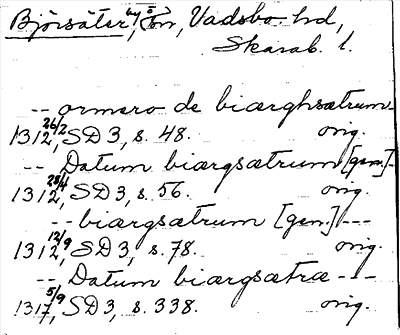 Björsäter, by o. sn, Vadsbo hd,
Skarab. l.
-- ormero de biærghsætrum --
1312 26/2, SD 3, s. 48. orig.
-- Datum biærgsætrum [gen.] --
1312 28/4, SD 3, s. 56. orig.
-- biærgsætrum [gen.] ---
1312 12/9, SD 3, s. 78. orig.
-- Datum biærgsætræ ---
1317 5/9, SD 3, s. 338. orig.